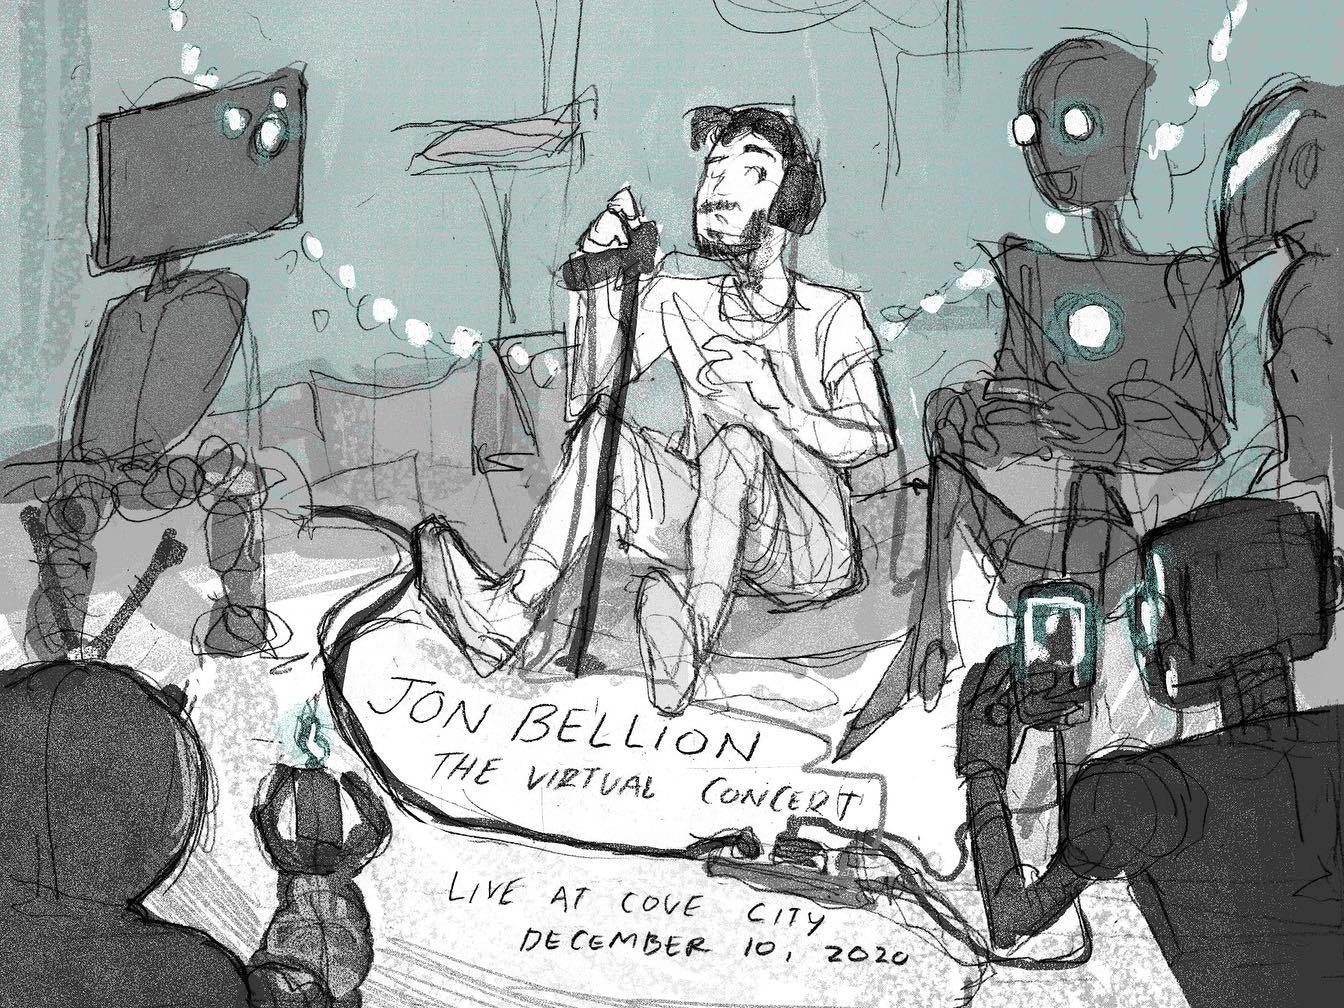 JON BELLION
THE VIRTUAL CONCERT
LIVE AT COVE CITY
DECEMBER 10, 2020